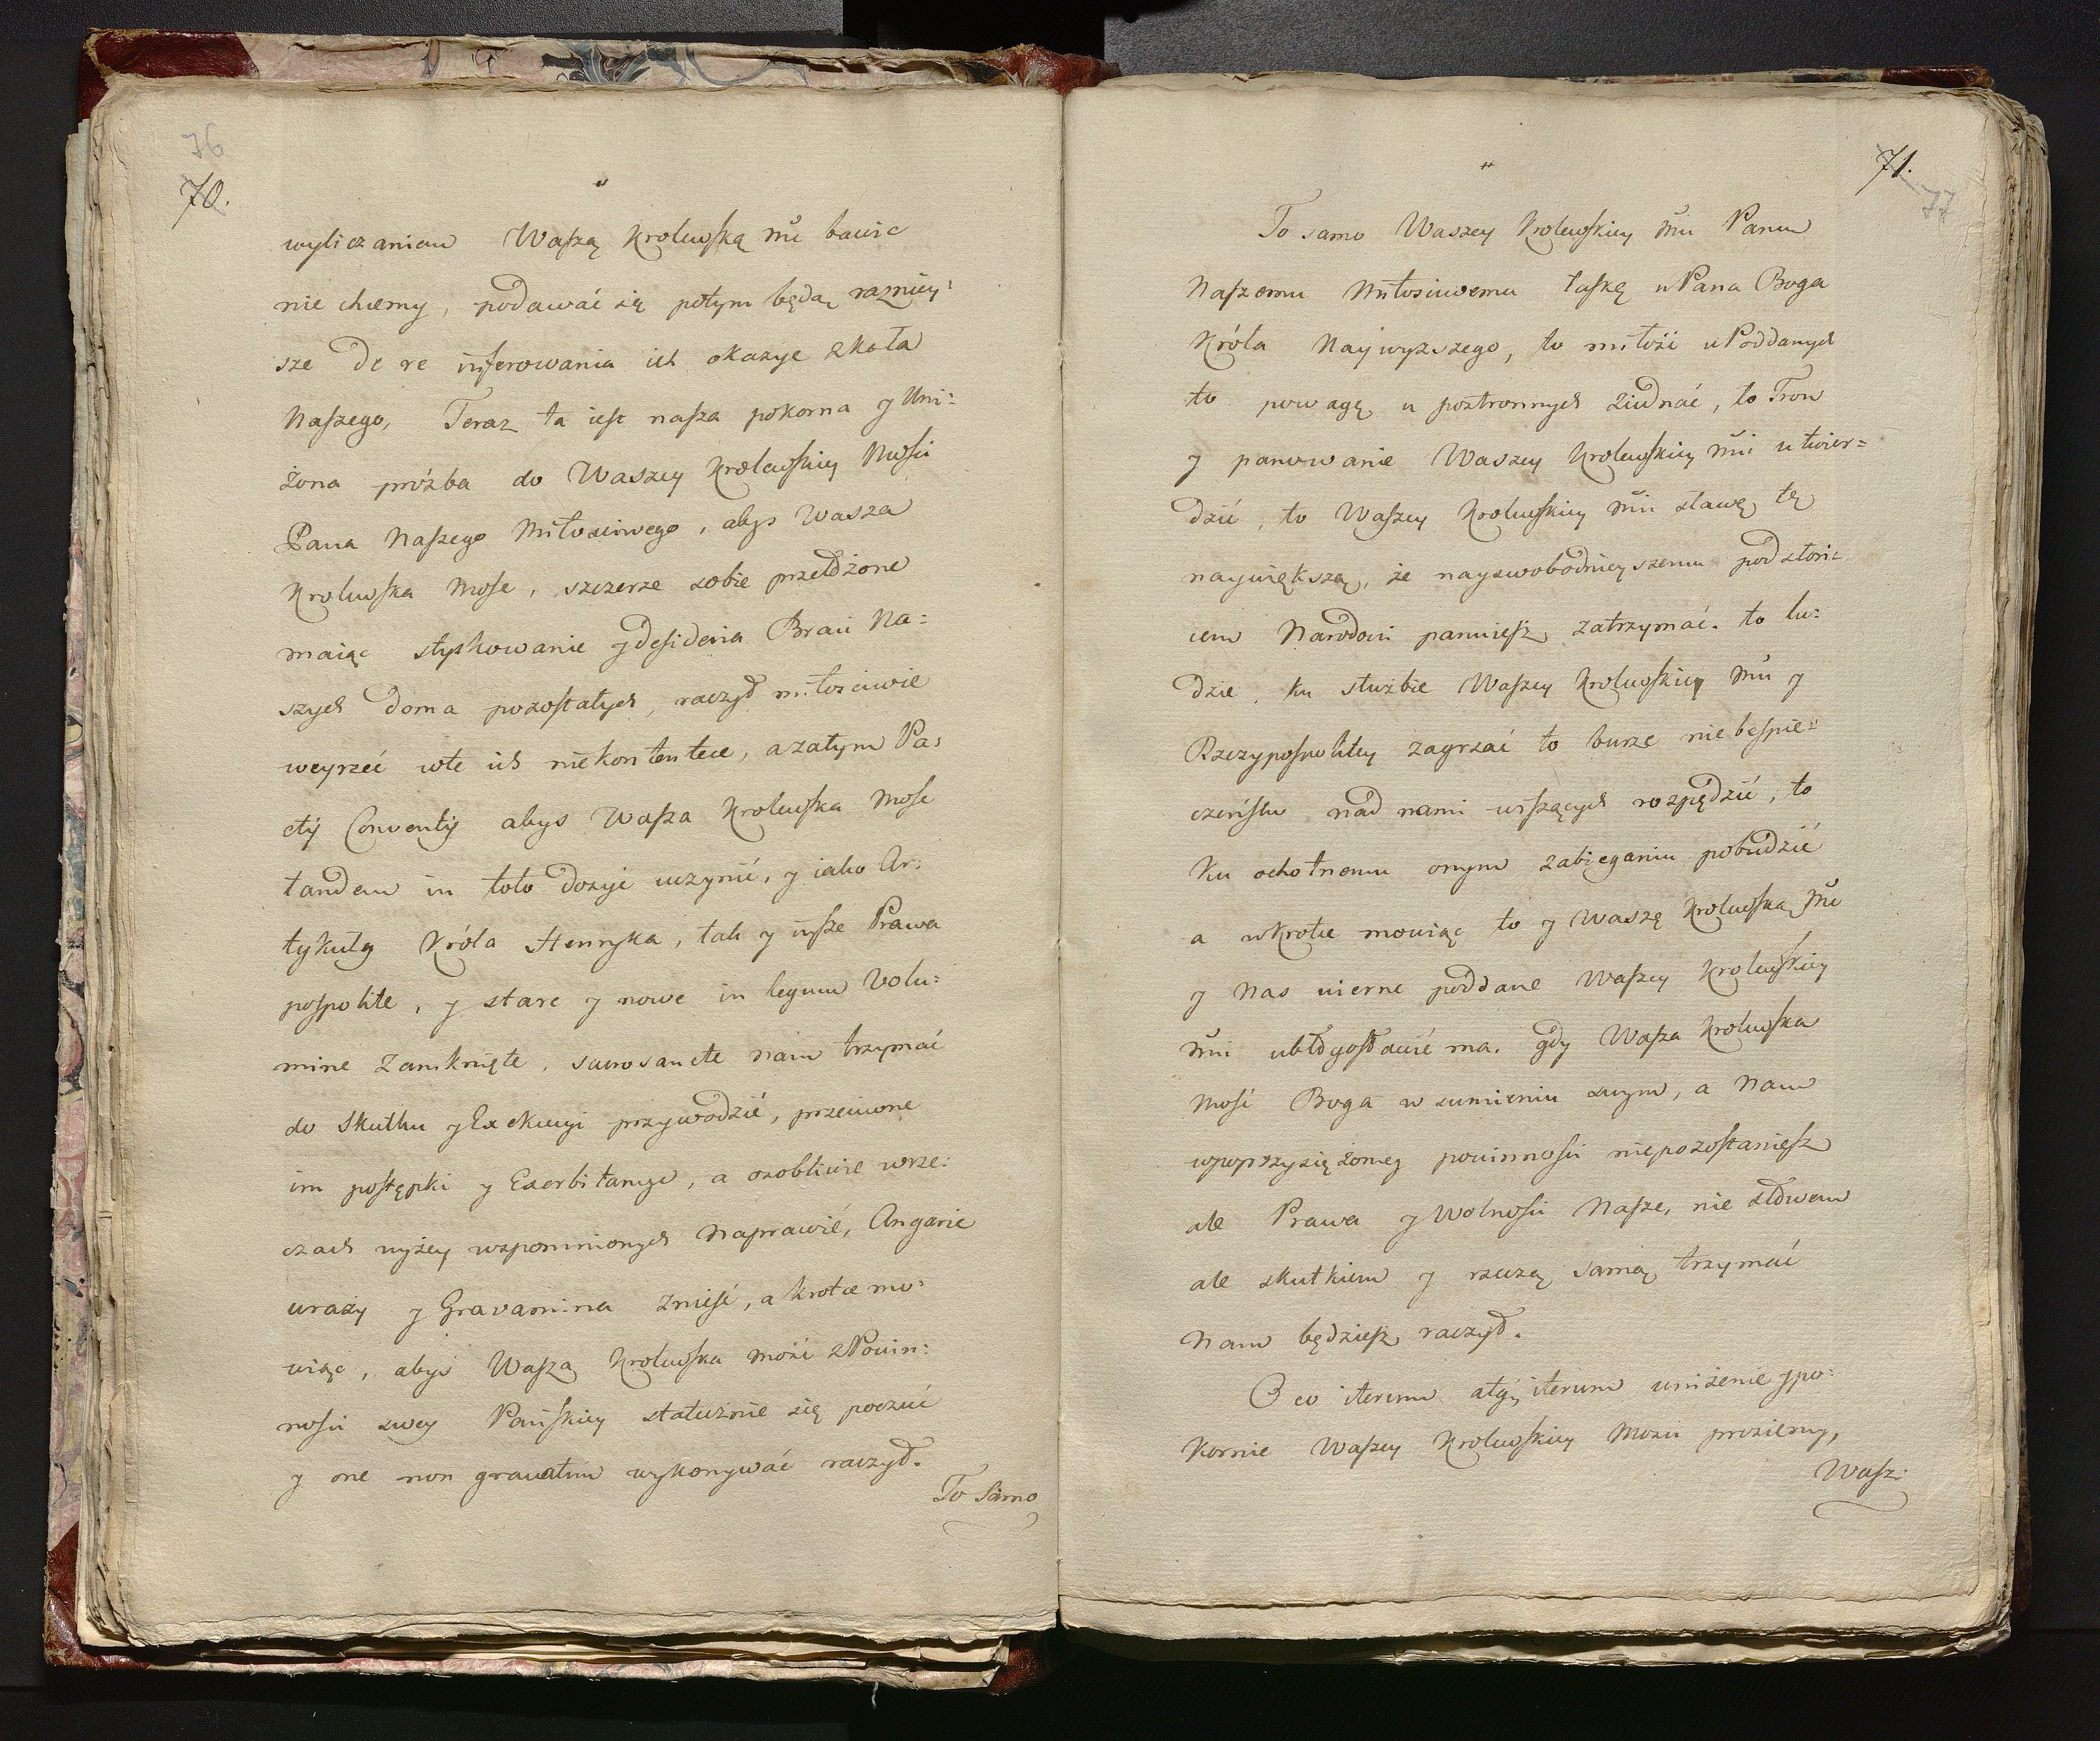 76
70.
wyliczaniem Waszą Krolewską Mci bawic
nie chcemy, podawać się potym będą razniey:
sze de re inferowania ich okazye zKoła
Naszego, Teraz ta iest nasza pokorna y Uni:
żona próżba do Waszey Krolewskiey Mości
Pana Naszego Miłosciwego, abys Wasza
Krolewska Mosc, szczerze sobie przełożone
maiąc styskowanie y desideria Braci Na:
szych doma pozostałych, raczył miłosciwie
weyrzeć wte ich niekontentece, azatym Pa:
cty Conventy abys Wasza Krolewska Mosc
tandem in toto dosyć uczynić, y iako Ar:
tykuły Króla Henryka, tak y insze Prawa
pospolite, y stare y nowe in legum Volu:
mine Zamknięte, sacrosancte nam trzymać
do Skutku y Exekucyi przywodzić, przeciwne
im postępki y Exorbitancye, a osobliwie wrze:
czach wyżey wspomnionych Naprawić, Angarie
urazy y Gravamina Znieść, a krotce mo:
wiąc, abys Wasza Krolewska Mość zPowin:
nosci swey Pańskiey statecznie się poczuć
y one non gravatim wykonywać raczył.
To Samo
71.
77
To samo Waszey Krolewskiey Mci Panu
Naszemu Miłosciwemu łaskę uPana Boga
Króla Naywyzszego, to miłość uPoddanych
to powagę u postronnych Ziednać, to Tron
y panowanie Waszey Krolewskiey Mci utwier=
dzić, to Waszey Krolewskiey Mci sławę tę
naywiększą, że nayswobodnieyszemu pod słon:
cem Narodowi panuiesz zatrzymać. to lu:
dzie, ku służbie Waszey Krolewskiey Mci y
Rzeczypospolitey zagrzać to burze niebespie:
czeństw nad nami wiszących rozpędzić, to
Ku ochotnemu onym zabieganiu pobudzić
a wKrotce mowiąc to y Waszę Krolewską Mc
y Nas wierne poddane Waszey Krolewskiey
Mci ubłogosławić ma. gdy Wasza Krolewska
Mosć Boga w sumieniu swym, a Nam
wpoprzysiężoney powinnosci niepozostaniesz
ale Prawa y Wolnosci Nasze, nie słowem
ale skutkiem y rzeczą samą trzymać
Nam będziesz raczył.
O co iterum atq; iterum uniżenie ypo:
Kornie Waszey Krolewskiey Mosci prosiemy,
Wasz: